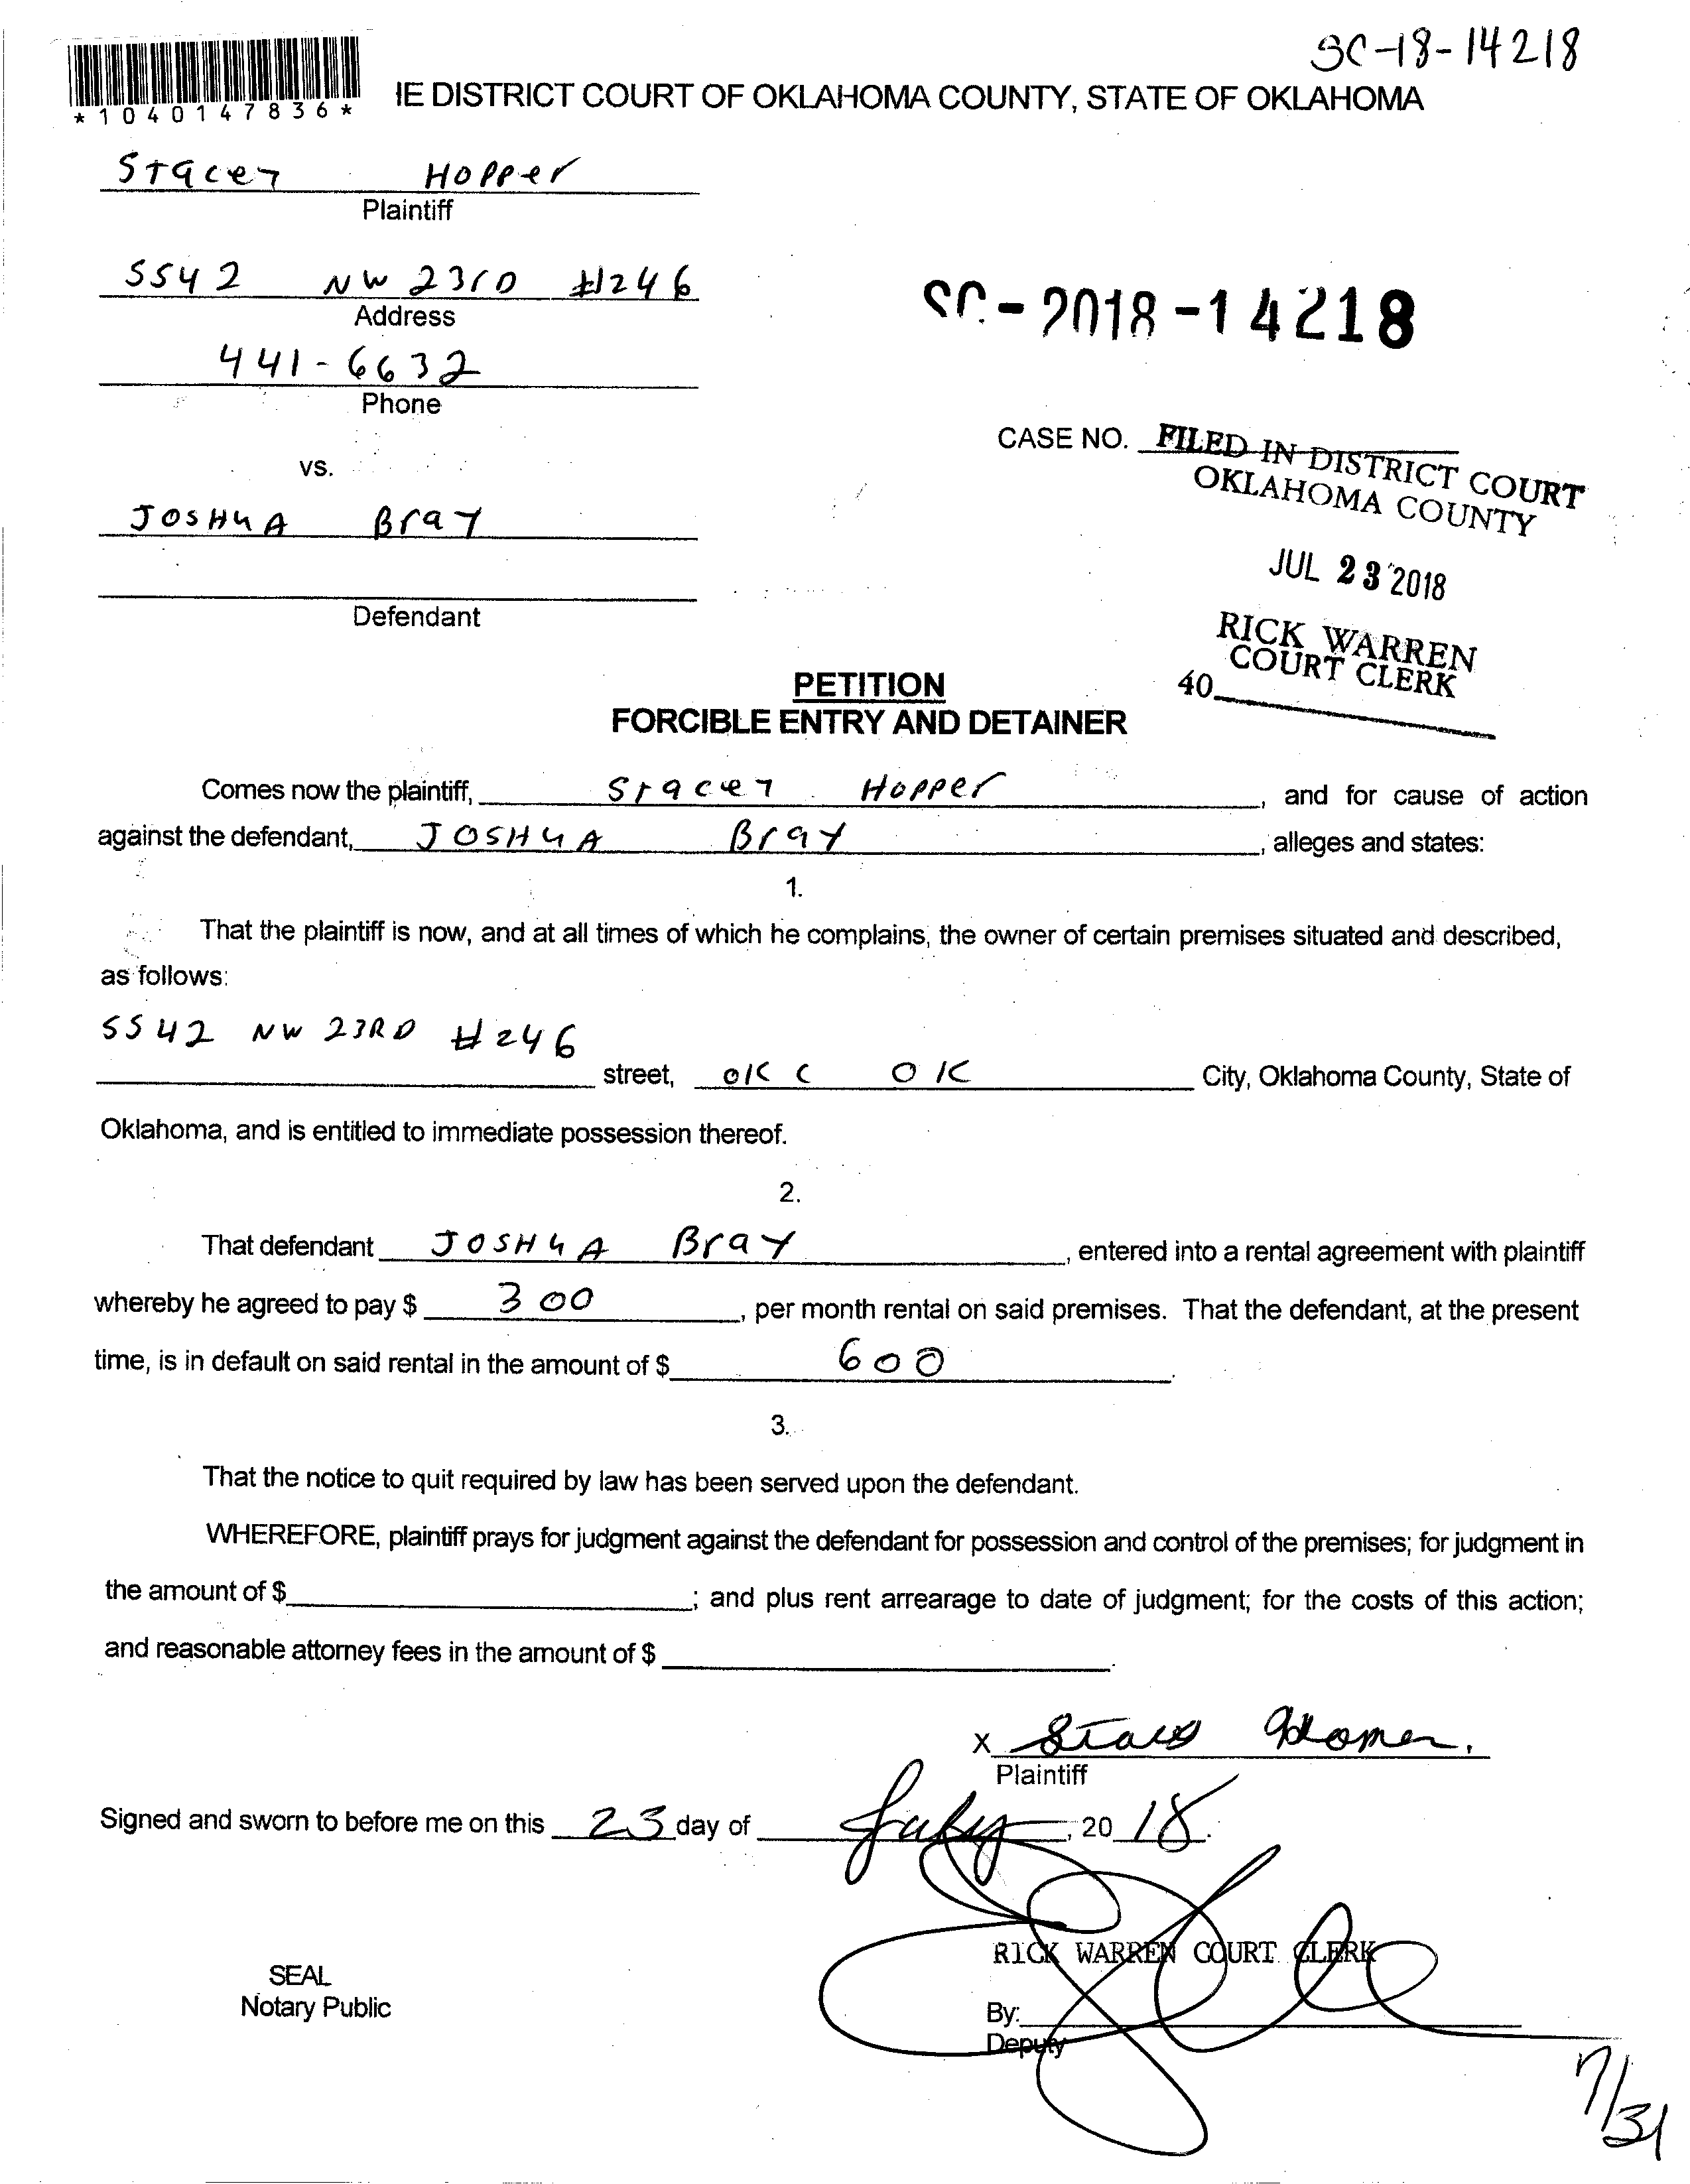 SC-18-14218
*1040147836*
IE DISTRICT COURT OF OKLAHOMA COUNTY, STATE OF OKLAHOMA
Stacey Hopper
Plaintiff
5542 NW 23rD #246
Address
SC-2018-14218
441-6632
Phone
CASE NO.
FILED IN DISTRICT COURT
OKLAHOMA COUNTY
vs.
JOSHUA Bray
JUL 23 2018
Defendant
RICK WARREN
COURT CLERK
40
PETITION
FORCIBLE ENTRY AND DETAINER
Comes now the plaintiff, Stacey Hopper, and for cause of action
against the defendant, JOSHUA Bray, alleges and states:
1.
That the plaintiff is now, and at all times of which he complains, the owner of certain premises situated and described,
as follows:
5542 NW 23RD #246
street, OKC OK City, Oklahoma County, State of
Oklahoma, and is entitled to immediate possession thereof.
2.
That defendant JOSHUA Bray, entered into a rental agreement with plaintiff
whereby he agreed to pay $ 300, per month rental on said premises. That the defendant, at the present
time, is in default on said rental in the amount of $ 600.
3.
That the notice to quit required by law has been served upon the defendant.
WHEREFORE, plaintiff prays for judgment against the defendant for possession and control of the premises; for judgment in
the amount of $ ; and plus rent arrearage to date of judgment; for the costs of this action;
and reasonable attorney fees in the amount of $ .
X
Plaintiff
Signed and sworn to before me on this 23 day of July, 20 18.
RICK WARREN COURT CLERK
SEAL
Notary Public
By:
Deputy
7/31